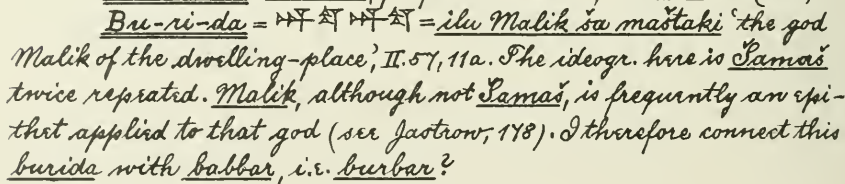 Bu-ri-da = 𒀭𒌓 𒀭𒌓 = ilu Malik ša maštaki ‘the god
Malik of the dwelling-place’, II. 57, 11a. The ideogr. here is Šamaš
twice repeated. Malik, although not Šamaš, is frequently an epi-
thet applied to that god (see Jastrow, 178). I therefore connect this
burida with babbar, i.e. burbar?